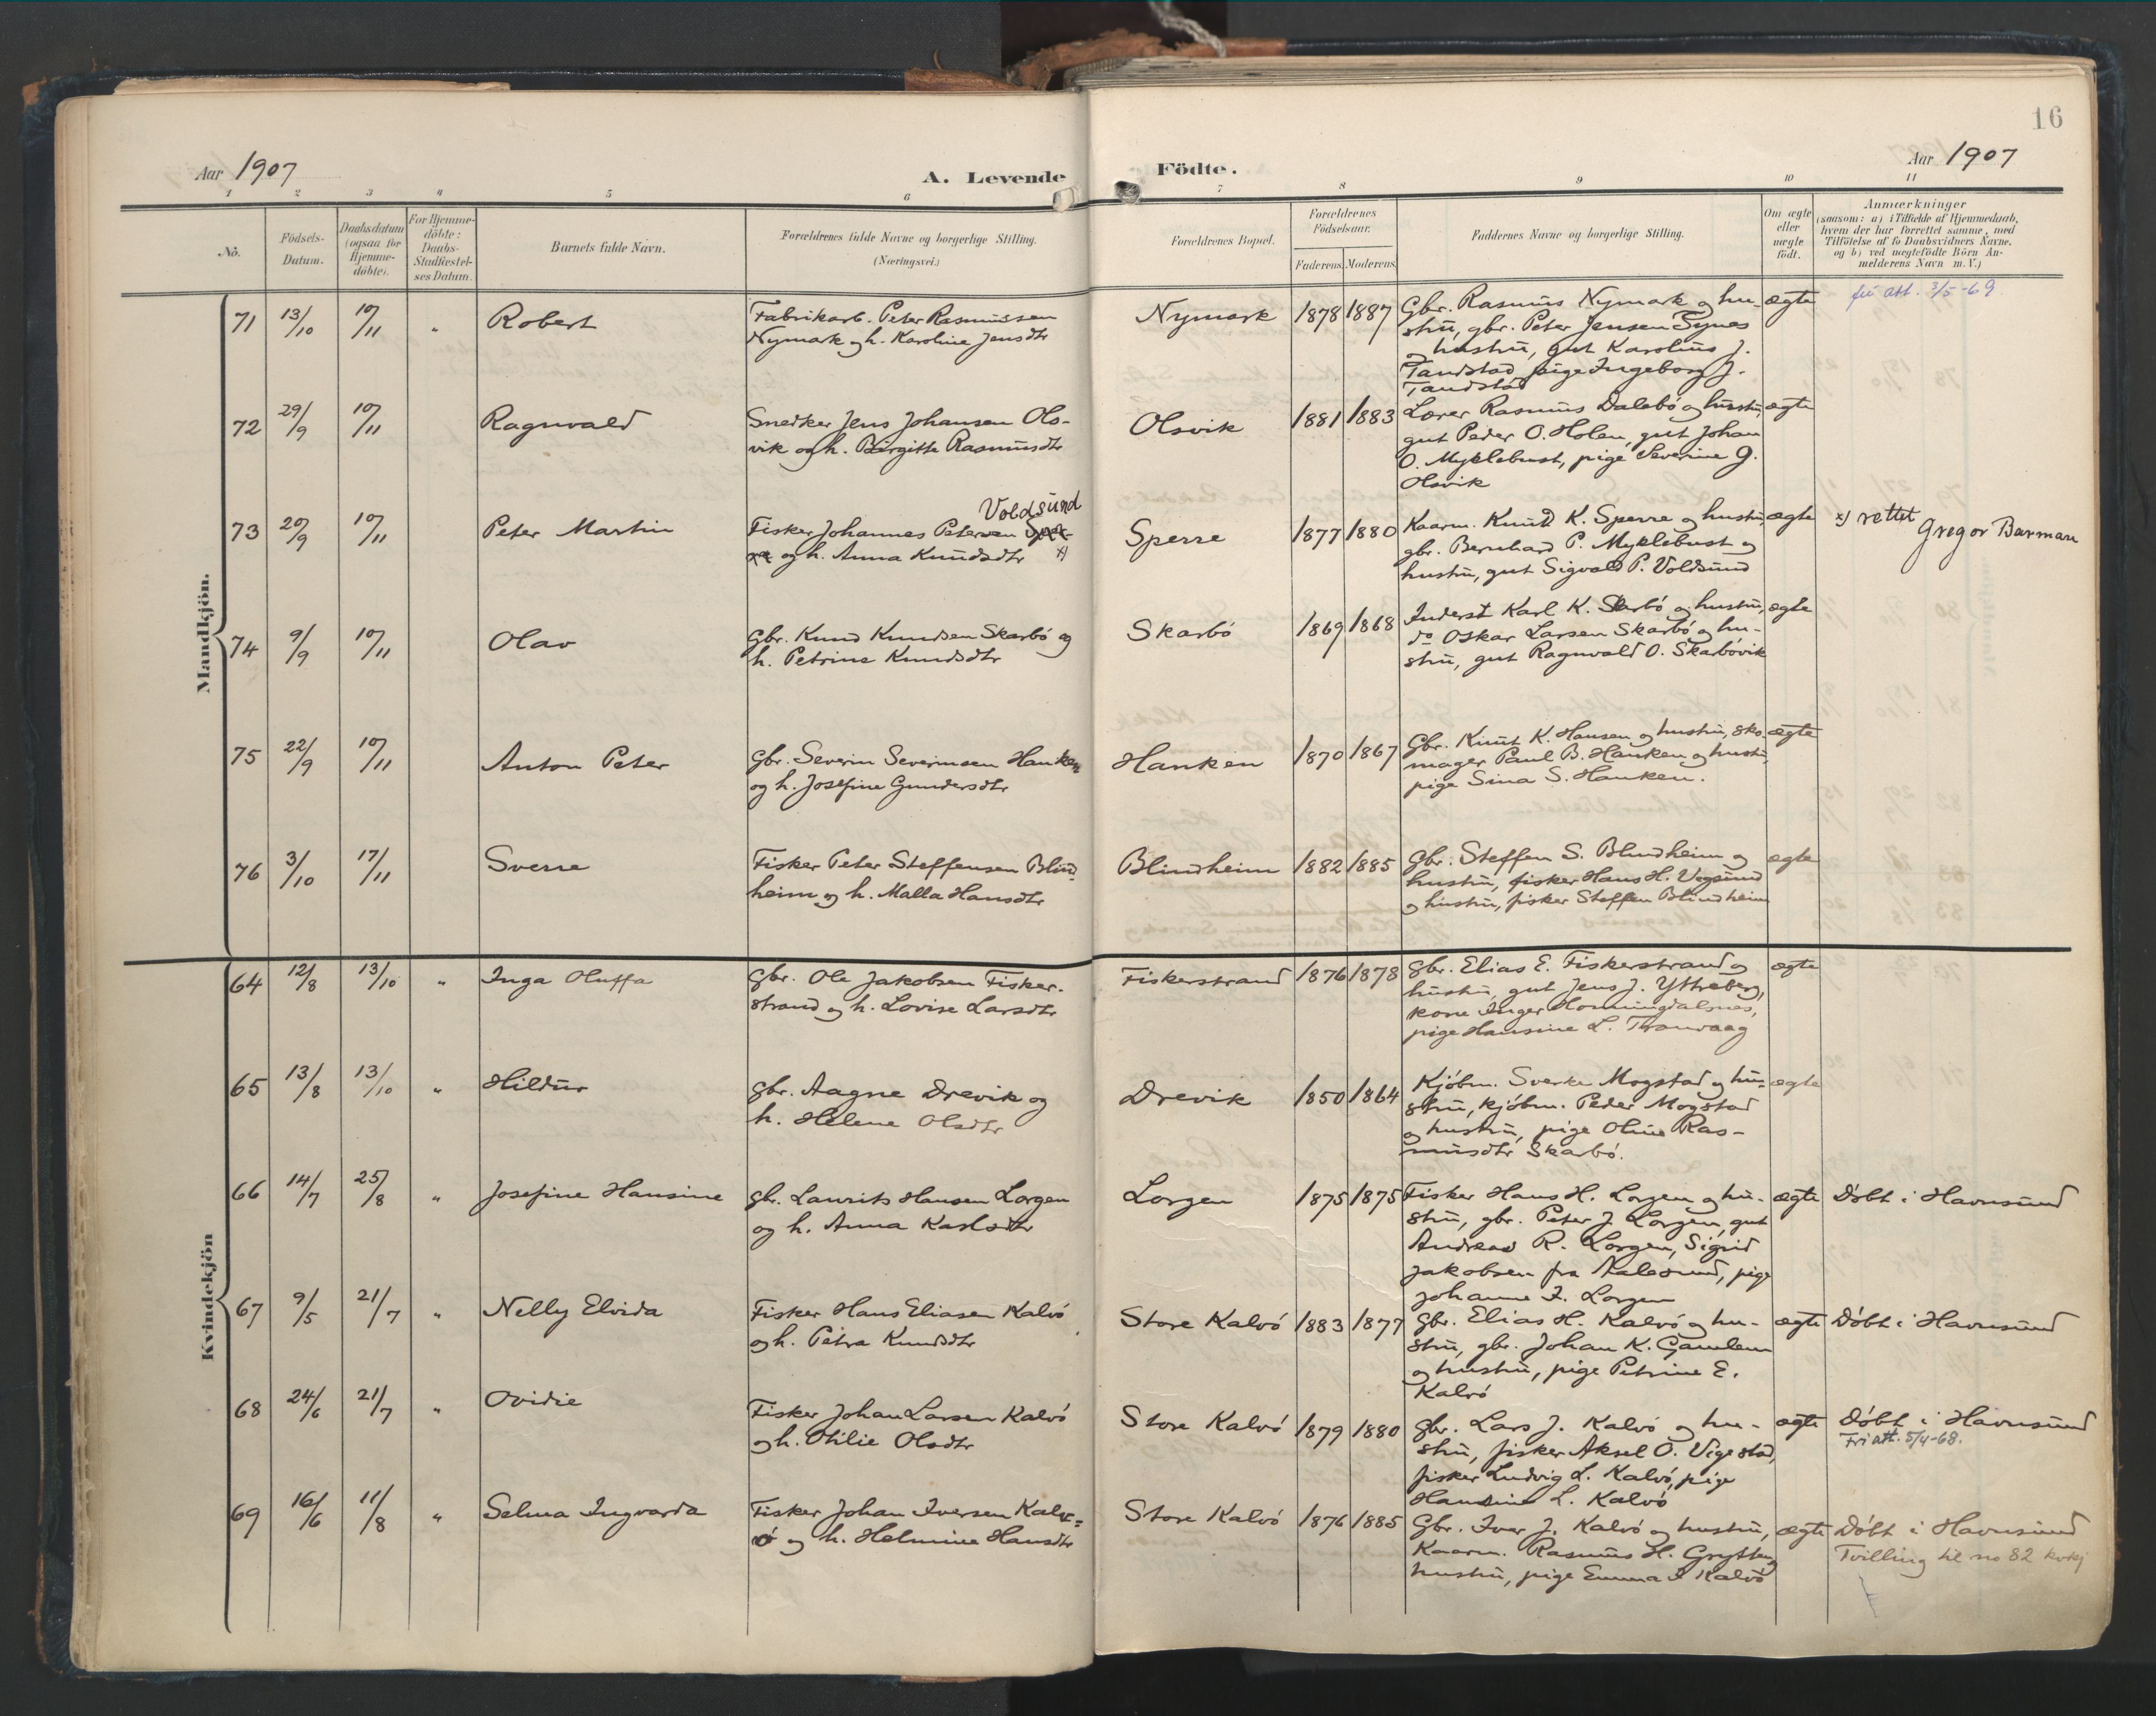 16
Aar 1907
A. Levende Födte.
Aar 1907
1 2 3 4 5 6 7 8 9 10 11
No.
Födsels-
Datum.
Daabsdatum
(ogsaa for
Hjemme-
döbte).
For Hjemme-
döbte:
Daabs-
Stadfæstel-
ses Datum.
Barnets fulde Navn.
Forældrenes fulde Navne og borgerlige Stilling.
(Næringsvei.)
Forældrenes Bopæl.
Forældrenes
Födselsaar.
Faderens. Moderens.
Faddernes Navne og borgerlige Stilling.
Om ægte
eller
uægte
født.
Anmærkninger
(saasom: a) i Tilfælde af Hjemmedaab,
hvem der har forrettet samme, med
Tilföielse af to Daabsvidners Navne,
og b) ved uægtefödte Börn An-
melderens Navn m. V.)
Mandkjön.
71 13/10 10/11 " Robert
Fabrikarb. Peter Rasmussen
Nymark og h. Karoline Jensdtr
Nymark 1878 1887
Gbr. Rasmus Nymark og hu-
stru, gbr. Peter Jensen Synes
og hustru, gut Karolius J.
Tandstad, pige Ingeborg J.
Tandstad
ægte
fri att. 3/5-69.
72 29/9 10/11 Ragnvald
Snedker Jens Johansen Ols-
vik og h. Birgitte Rasmusdtr
Olsvik 1881 1883
Lærer Rasmus Dalebö og hustru,
gut Peder O. Holen, gut Johan
O. Myklebust, pige Severine J.
Olsvik
ægte
73 20/9 10/11 Peter Martin
Voldsund
Fisker Johannes Petersen Sper-
re og h. Anna Knudsdtr x)
Sperre 1877 1880
Kaarm. Knud K. Sperre og hustru,
gbr. Bernhard P. Myklebust og
hustru, gut Sigvald P. Voldsund
ægte
x) rettet
Gregor Barman
74 9/9 10/11 Olav
Gbr. Knud Knudsen Skarbö og
h. Petrine Knudsdtr
Skarbö 1869 1868
Inderst Karl K. Skarbö og hustru,
do Oskar Larsen Skarbö og hu-
stru, gut Ragnvald O. Skarbövik
ægte
75 22/9 10/11 Anton Peter
Gbr. Severin Severinsen Hanken
og h. Josefine Gundersdtr
Hanken 1870 1867
Gbr. Knut K. Hansen og hustru, sko-
mager Paul B. Hanken og hustru,
pige Sina S. Hanken.
ægte
76 3/10 17/11 Sverre
Fisker Peter Steffensen Blind-
heim og h. Malla Hansdtr
Blindheim 1882 1885
Gbr. Steffen S. Blindheim og
hustru, fisker Hans H. Vegsund
og hustru, fisker Steffen Blindheim
ægte
Kvindekjön
64 12/8 13/10 " Inga Oluffa
Gbr. Ole Jakobsen Fisker-
strand og h. Lovise Larsdtr
Fiskerstrand 1876 1878
Gbr. Elias E. Fiskerstrand og
hustru, gut Jens J. Yttreberg,
kone Inger Honningdalsnes,
pige Hansine L. Tranvaag
ægte
65 13/8 13/10 " Hildur
Gbr. Aagne Drevik og
h. Helene Olsdtr
Drevik 1850 1864
Kjöbm. Sverke Mogstad og hu-
stru, kjöbm. Peder Mogstad
og hustru, pige Oline Ras-
musdtr Skarbö.
ægte
66 14/7 25/8 " Josefine Hansine
Gbr. Laurits Hansen Lorgen
og h. Anna Karlsdtr
Lorgen 1875 1875
Fisker Hans H. Lorgen og hu-
stru, gbr. Peter J. Lorgen, gut
Andreas R. Lorgen, Sigrid
Jakobsen fra Aalesund, pige
Johanne I. Lorgen
ægte
Döbt i Havnsund
67 9/5 21/7 " Nelly Elvida
Fisker Hans Eliasen Kalvö
og h. Petra Knudsdtr
Store Kalvö 1883 1877
Gbr. Elias H. Kalvö og hu-
stru, gbr. Johan K. Gamlem
og hustru, pige Petrine E.
Kalvö
ægte
Döbt i Havnsund
68 24/6 21/7 " Ovidie
Fisker Johan Larsen Kalvö
og h. Otilie Olsdtr
Store Kalvö 1879 1880
Gbr. Lars J. Kalvö og hu-
stru, fisker Aksel O. Vigestad,
fisker Ludvig L. Kalvö, pige
Hansine L. Kalvö
ægte
Döbt i Havnsund
Fri att. 5/4-68.
69 16/6 11/8 " Selma Ingvarda
Fisker Johan Iversen Kalv-
ö og h. Helmine Hansdtr
Store Kalvö 1876 1885
Gbr. Iver J. Kalvö og hustru,
Kaarm. Rasmus H. Grytten og
hustru, pige Emma I Kalvö
ægte
Döbt i Havnsund
Tvilling til no 82 kvkj